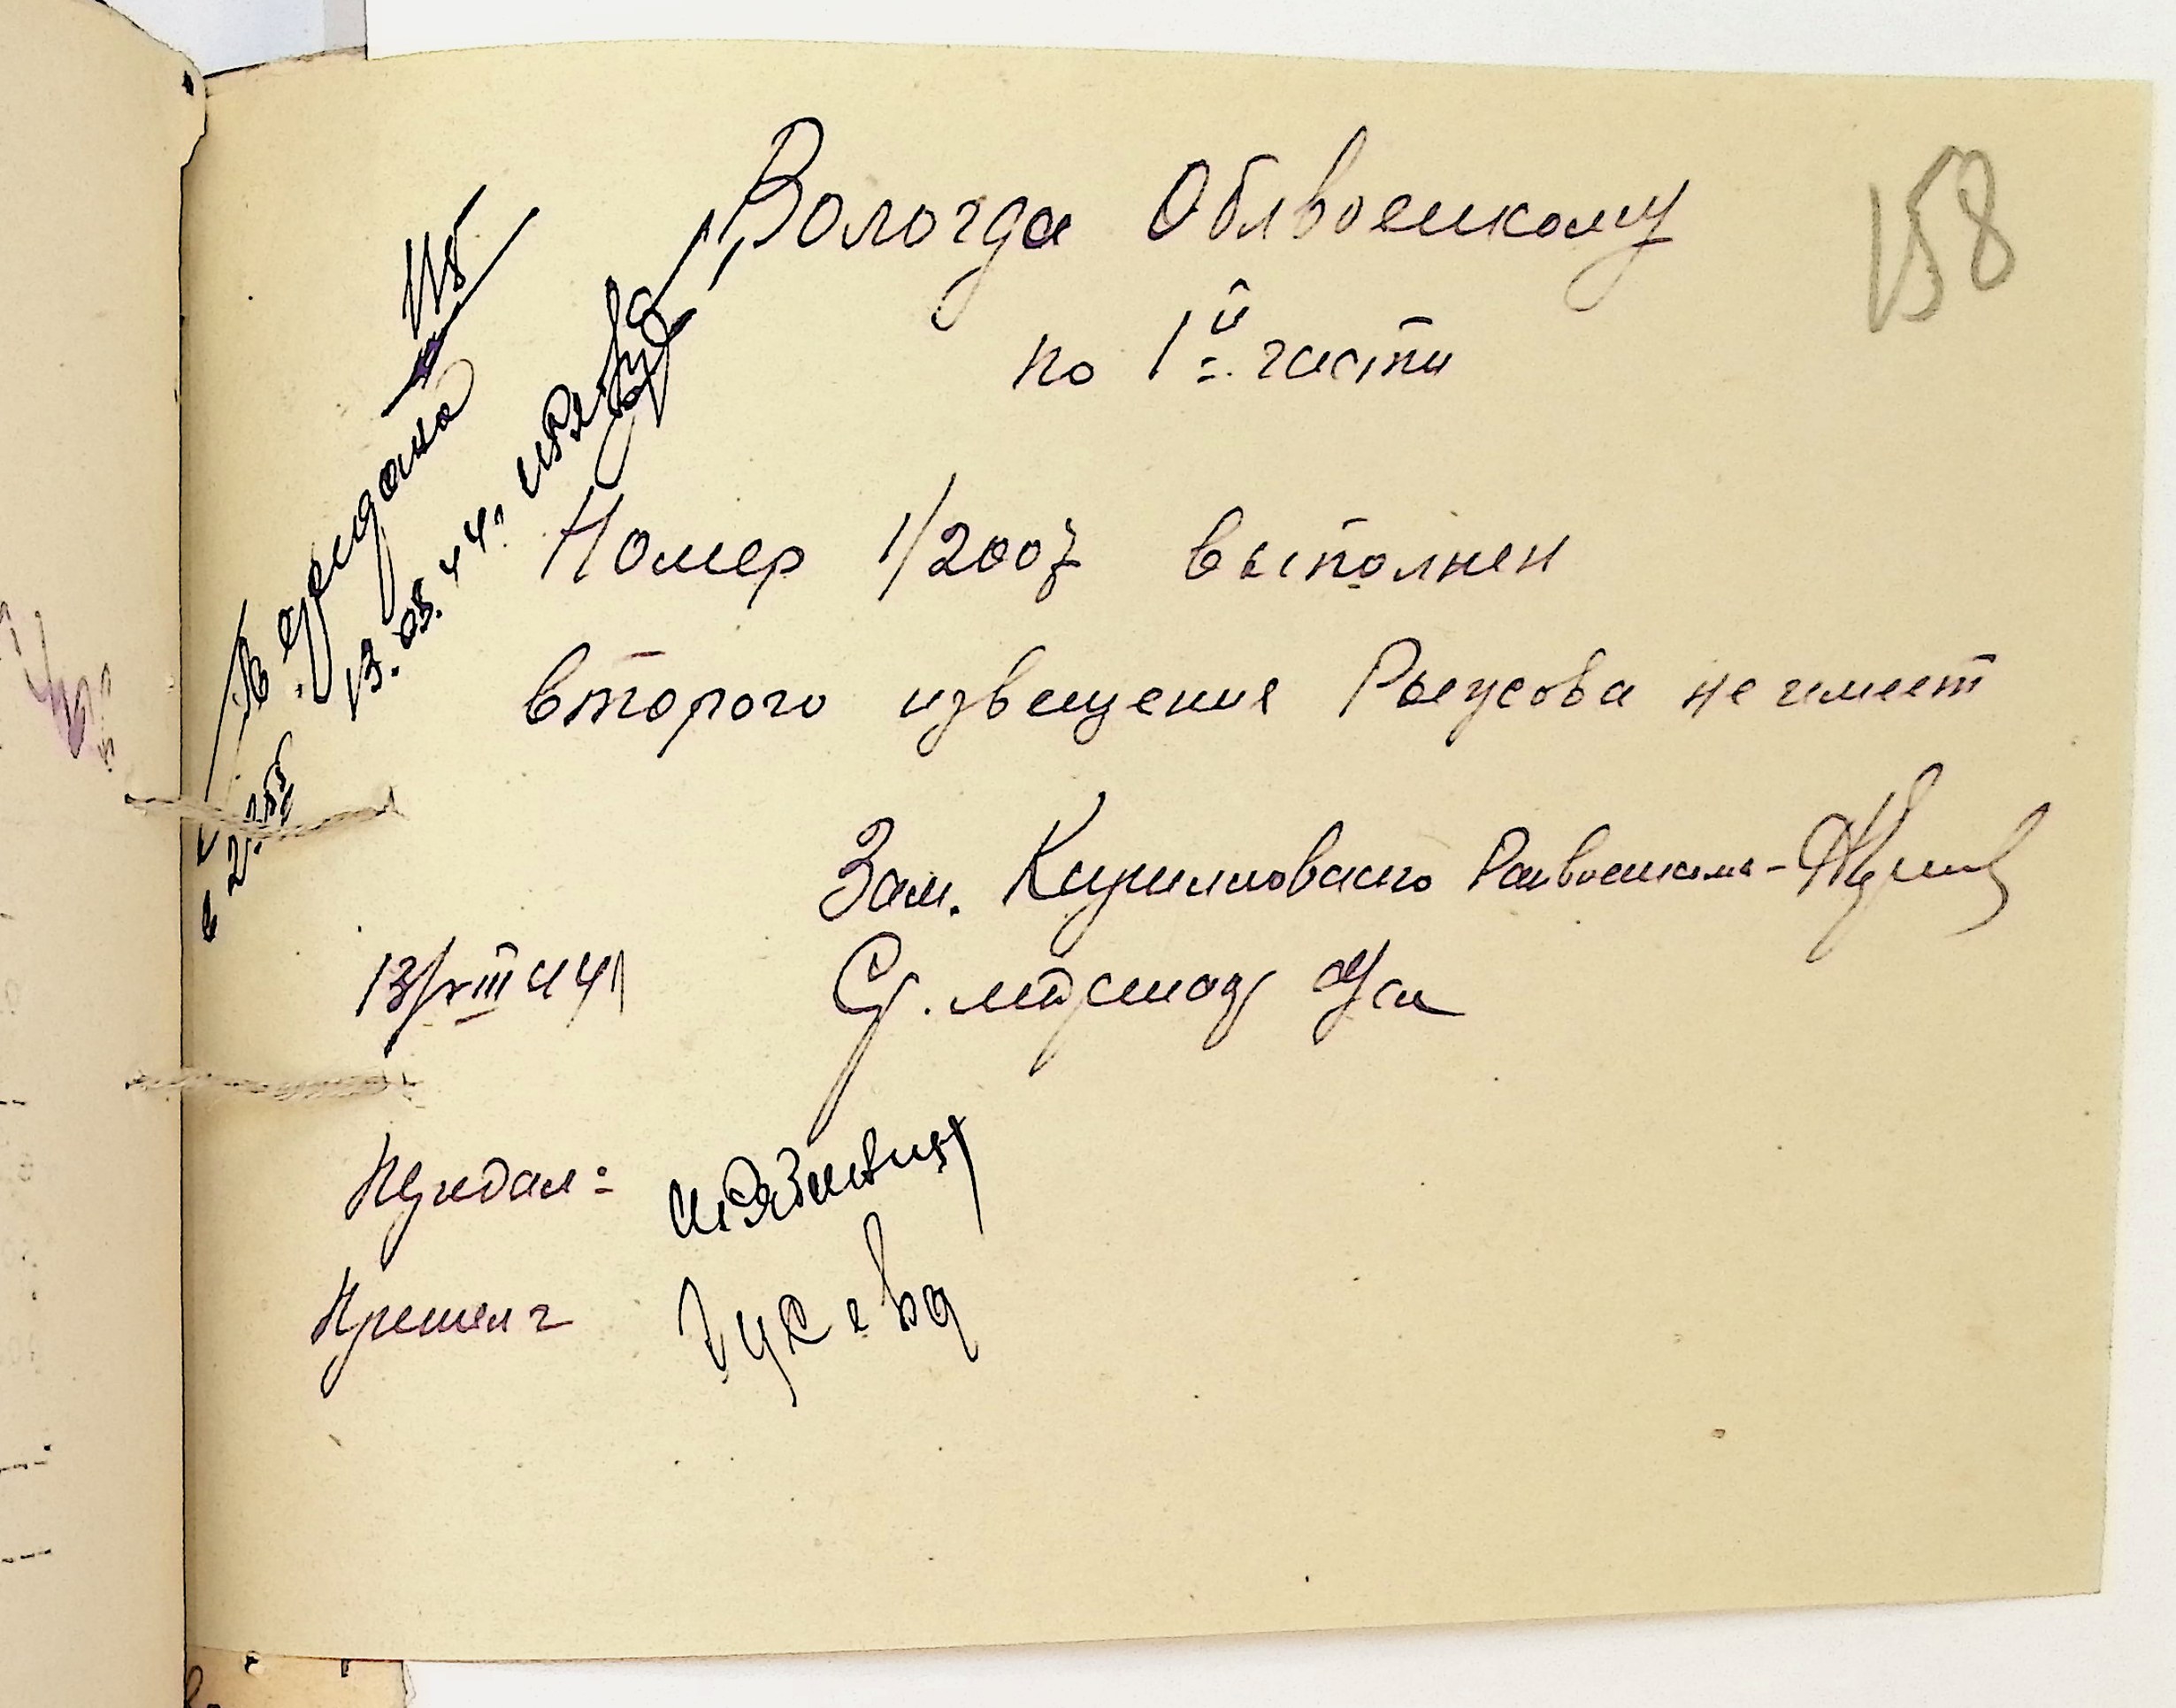 158
Вологда Облвоенкому
по 1й части
Номер 1/2007 выполнен
второго извещения не имеет
Зам. Кирилловского Райвоенкома -
Ст. лейтенант
13/VIII 44
Передал:
Принял:
Гусева
Передана
13.08.44г.